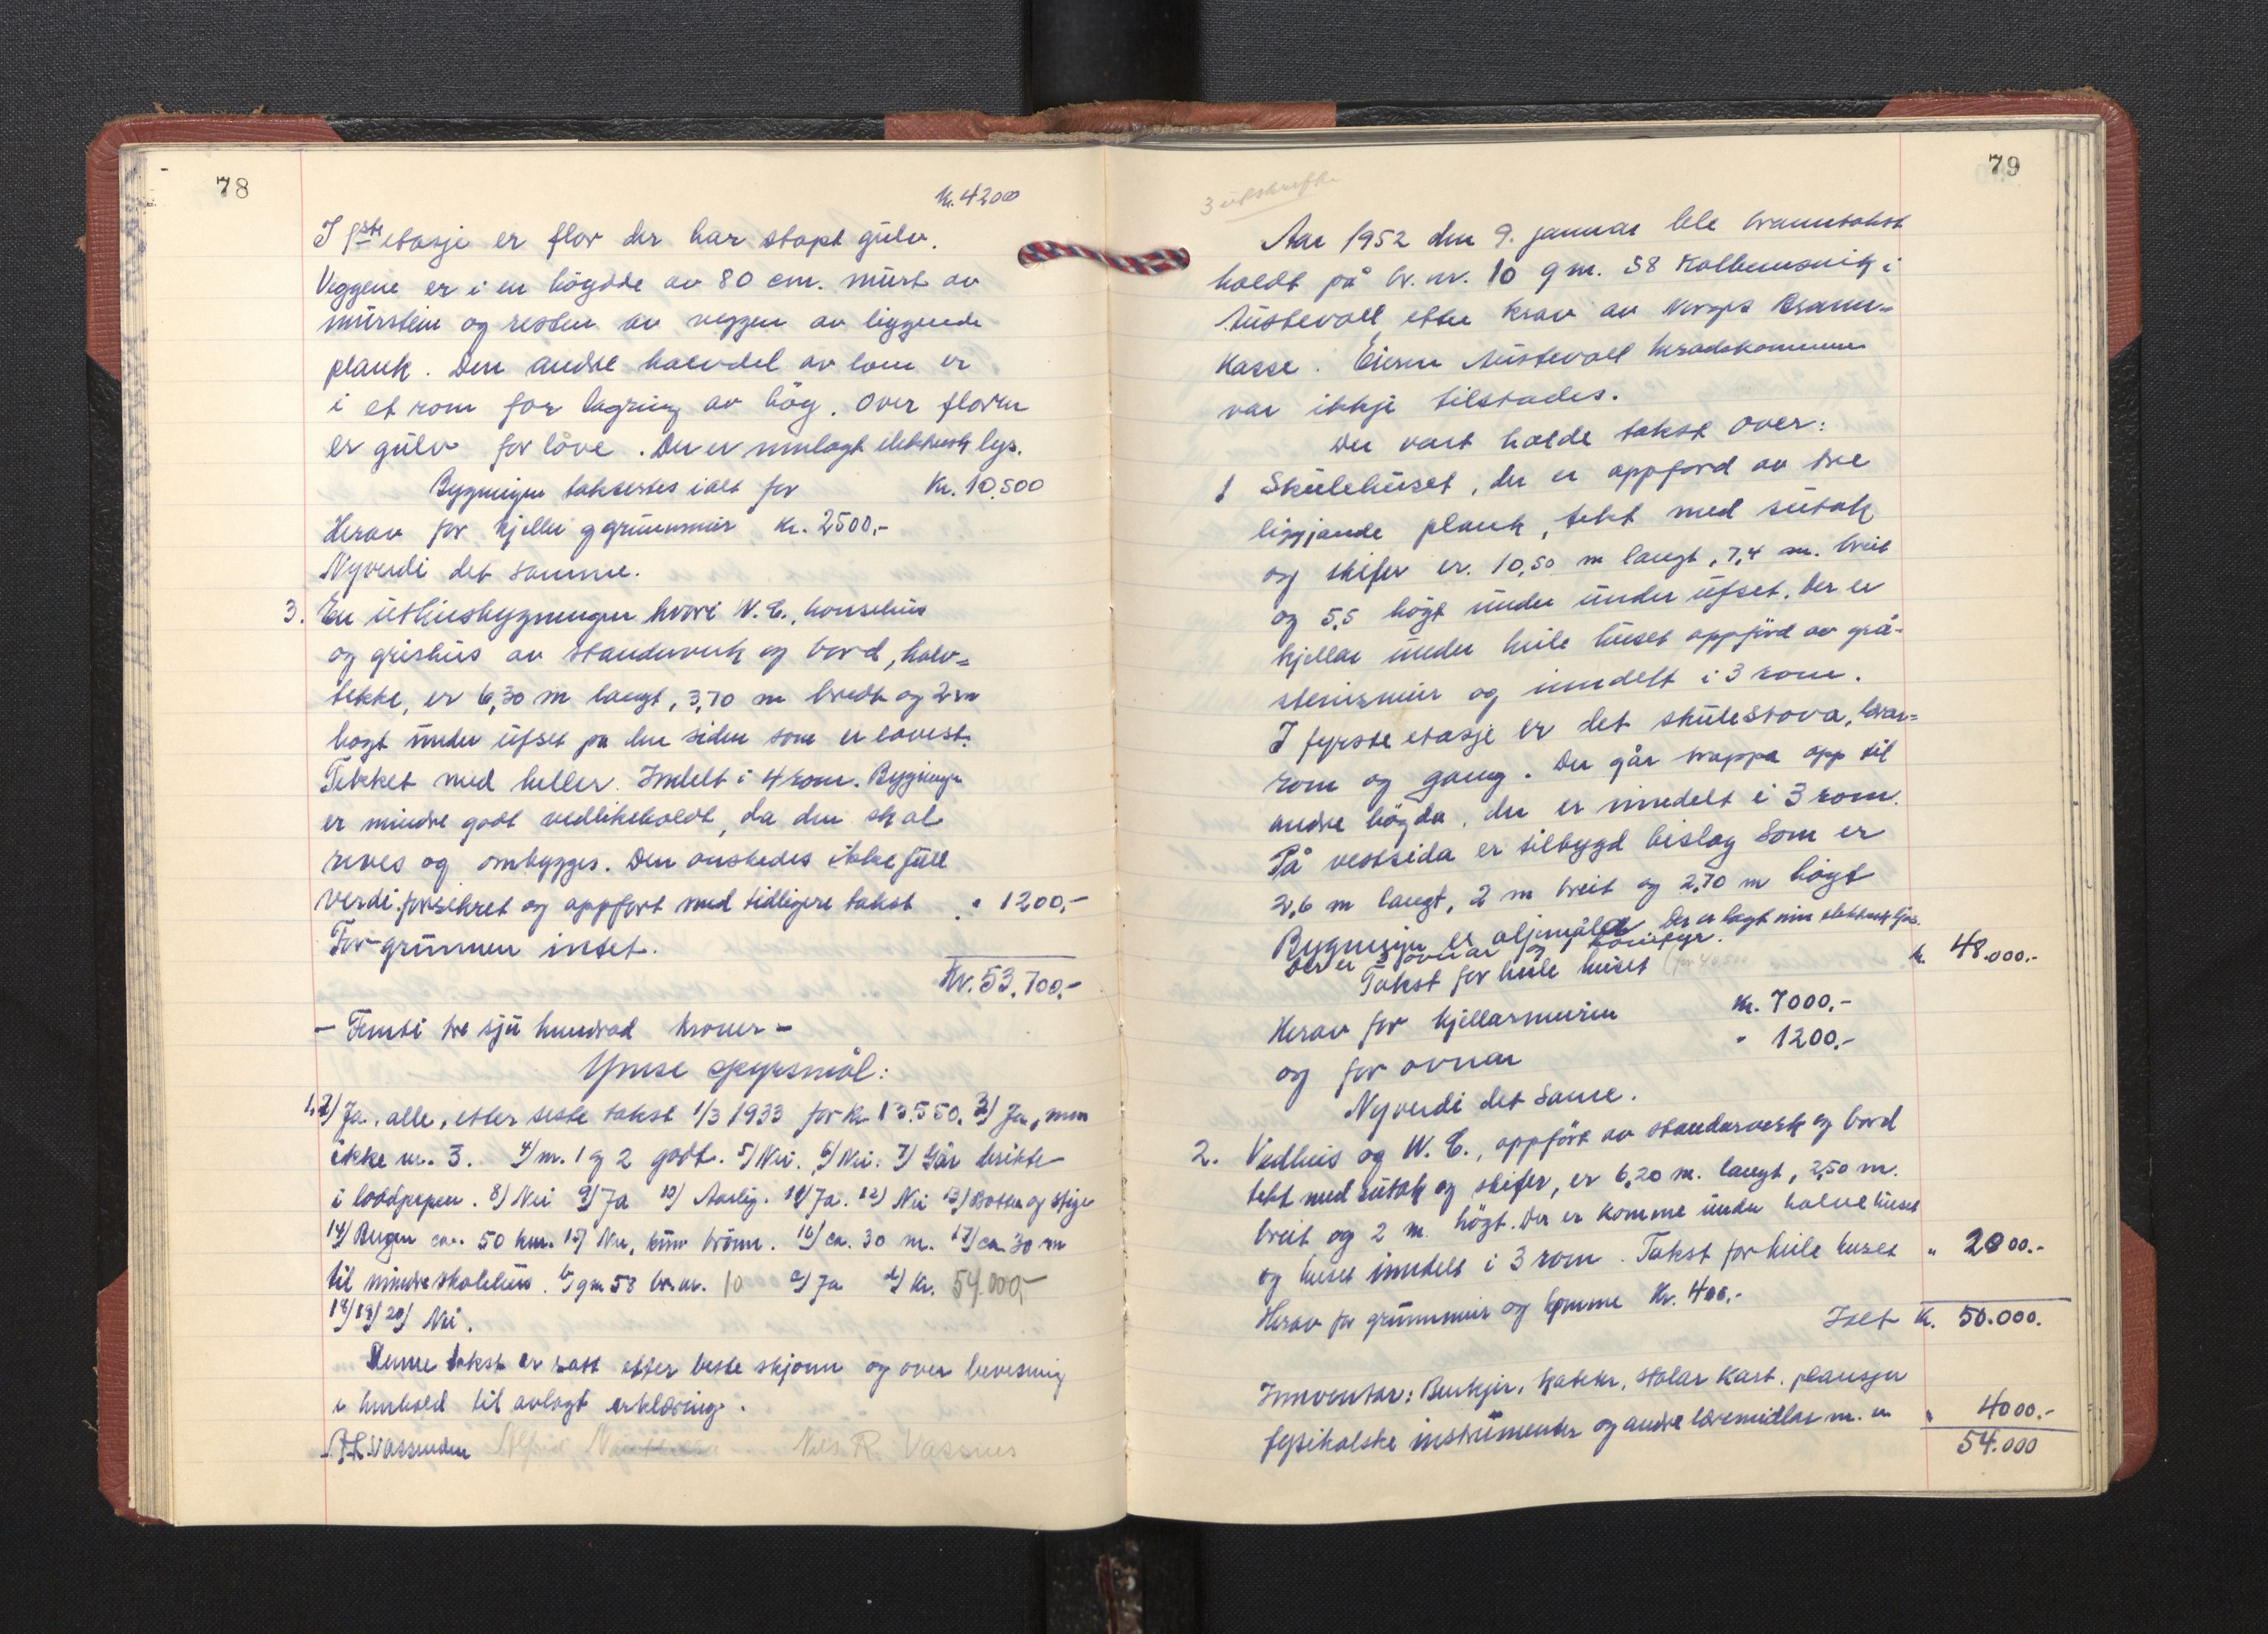 78
Kr. 42000
I 1ste etasje er flor der har støpt gulv.
Veggene er i en høgde av 80 cm. murt av
murstein og resten av veggen av liggende
plank. Den andre halvdel av løen er
i et rom for lagring av høy. Over floren
er gulv for løve. Der er innlagt elektrisk lys.
Bygningen takseres ialt for Kr. 10.500
Herav for kjeller og grunnmur Kr. 2500,-
Nyverdi det samme.
3. En uthusbygningen hvori W.C., hønsehus
og grishus av standerverk og bord, halv-
tekke, er 6,30 m langt, 3,70 m bredt og 2 m
høgt under ufset på den siden som er lavest.
Tekket med heller. Inndelt i 4 rom. Bygningen
er mindre godt vedlikeholdt, da den skal
rives og ombygges. Den ønskedes ikke full
verdi forsikret og oppført med tidligere takst " 1200,-
For grunnen intet.
Kr. 53.700,-
- Femti tre sju hundrad kroner -
Ymse spyrsmål:
1,2) Ja, alle, etter siste takst 1/3 1933 for kr 13.550. 3) Ja, men
ikke nr. 3. 4) nr. 1 og 2 godt. 5) Nei. 6) Nei. 7) Går direkte
i loddpipen. 8) Nei 9) Ja 10) Aarlig. 11) Ja. 12) Nei 13) Bøtter og stige
14) Bergen ca. 50 km. 15) Nei, kun brønn. 16) ca. 30 m. 17) ca. 30 m
til mindre skolehus. b) gnr 58 br.nr. 10 c) Ja d) Kr. 54.000,-
18) 19) 20) Nei.
Denne takst er satt etter beste skjønn og overbevisning
i henhold til avlagt erklæring.
Vassenden Alfred Nils R.
79
3 utskrifter
Aar 1952 den 9. januar ble branntakst
holdt på br. nr. 10 gnr. 58 Kolbeinsvik i
Austevoll etter krav av Norges Brann-
kasse. Eieren Austevoll heradskommune
var ikkje tilstades.
Der vart halde takst over:
1 Skulehuset, der er oppførd av tre
liggjande plank, tekt med sutak
og skifer er. 10,50 m langt, 7,4 m. breit
og 5,5 høgt under under ufset. Der er
kjellar under heile huset oppførd av grå-
steinsmur og inndelt i 3 rom.
I fyrste etasje er det skulestova, lærar-
rom og gang. Der går trappa opp til
andre høgda, der er inndelt i 3 rom.
På vestsida er tilbygd bislag som er
2,6 m langt, 2 m breit og 2,70 m høgt
Bygningen er oljemåla. Der er lagt inn elektrisk ljos.
Der er 3 ovnar og
Takst for heile huset k. 48.000.-
Herav for kjellarmuren Kr. 7000,-
og for ovnar " 1200,-
Nyverdi det same.
2. Vedhus og W. C., oppført av standarverk og bord
tekt med sutak og skifer, er 6,20 m. langt, 2,50 m.
breit og 2 m. høgt. Der er komme under halve huset
og huset inndelt i 3 rom. Takst for heile huset " 2000.-
Herav for grunnmur og komme Kr. 400,-
Ialt K. 50.000.
Innventar: Benkjer, kateter, stolar kart. plansjer
fysikalske instrumenter og andre læremidlar m. v. " 4000.-
54.000